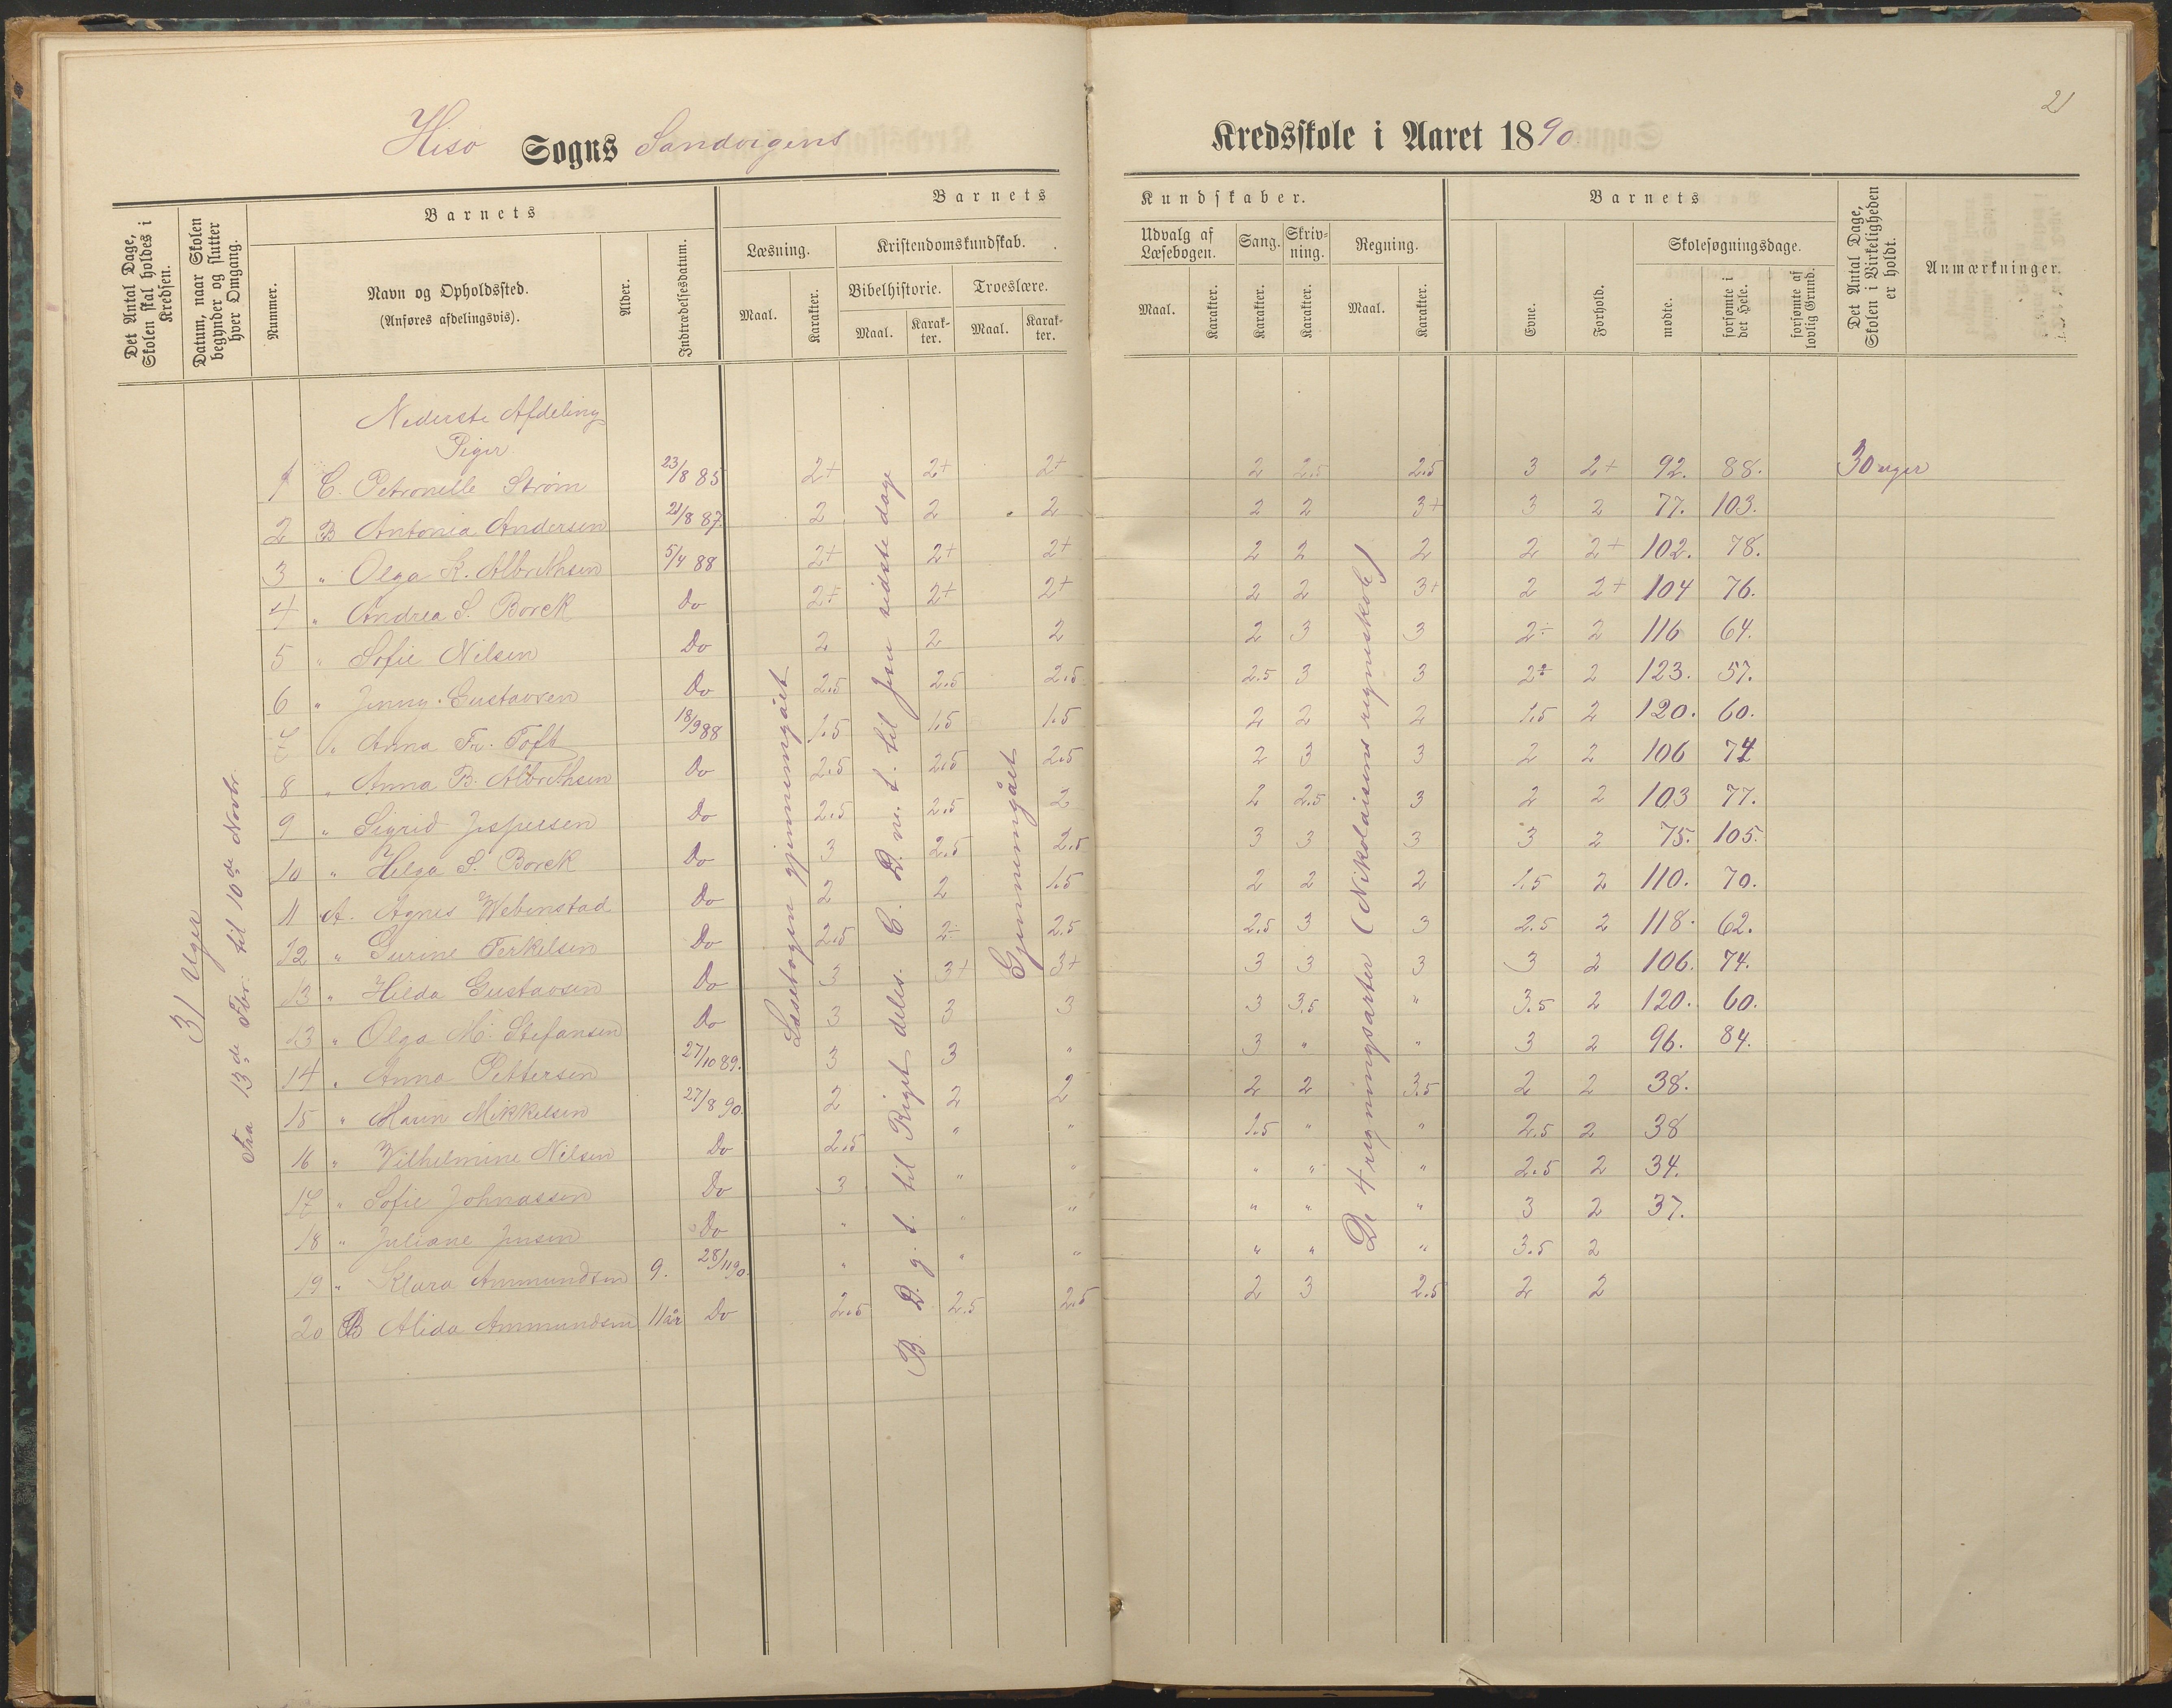 Hisø Sogns Sandvigens
Det Antal Dage, Skolen skal holdes i Kredsen.
Datum, naar Skolen begynder og slutter hver Omgang.
Barnets
Nummer.
Navn og Opholdssted.
(Anføres afdelingsvis).
Alder.
Indtrædelsesdatum.
Barnets
Læsning.
Maal.
Karakter.
Kristendomskundskab.
Bibelhistorie.
Maal.
Karakter.
Troeslære.
Maal.
Karakter.
31 Uger
Fra 13de Fbr: til 10de Novbr.
Nederste Afdeling
Piger
1 C. Petronelle Strøm 23/8 85 2+ 2+ 2+
2 B Antonia Andersen 21/8 87. 2 2 2
3 " Olga K. Albrethsen 5/4 88 2+ 2+ 2+
4 " Andrea S. Borck Do 2+ 2+ 2+
5 " Sofie Nilsen Do 2 2 2
6 " Jenny Gustavsen Do 2.5 2.5 2.5
7 " Anna Fr. Toft 18/9 88 1.5 1.5 1.5
8 " Anna B. Albrethsen Do 2.5 2.5 2.5
9 " Sigrid Jespersen Do 2.5 2.5 2
10 " Helga S. Borck Do 3 2.5 2.5
11 A. Agnes Webenstad Do 2 2 1.5
12 " Gurine Terkelsen Do 2.5 2÷ 2.5
13 " Hilda Gustavsen Do 3 3+ 3+
13 " Olga M. Stefansen Do 3 3 3
14 " Anna Pettersen 27/10 89. 3 3 "
15 " Maren Mikkelsen 27/8 90. 2 2 2
16 " Vilhelmine Nilsen Do 2.5 " "
17 " Sofie Johnassen Do 3 " "
18 " Juliane Jensen Do " " "
19 " Klara Ammundsen 9. 28/11 90. " " "
20 B Alida Ammundsen 11 år Do 2.5 2.5 2.5
Læsebogen gjennemgået
B. D. g. t. til Riget deles. C. D. n. t. til Jesu sidste dage
Gjennemgået
Kredsskole i Aaret 1890
21
Kundskaber.
Udvalg af Læsebogen.
Maal.
Karakter.
Sang.
Karakter.
Skrivning.
Karakter.
Regning.
Maal.
Karakter.
Barnets
Evne.
Forhold.
Skolesøgningsdage.
mødte.
forsømte i det Hele.
forsømte af lovlig Grund.
Det Antal Dage, Skolen i Virkeligheden er holdt.
Anmærkninger.
2 2.5 2.5 3 2+ 92. 88. 30 uger
2 2 3+ 3 2 77. 103.
2 2 2 2 2+ 102. 78.
2 2 3+ 2 2+ 104 76.
2 3 3 2÷ 2 116 64.
2.5 3 3 2÷ 2 123. 57.
2 2 2 1.5 2 120. 60.
2 3 3 2 2 106 74
2 2.5 3 2 2 103 77.
3 3 3 3 2 75. 105.
2 2 2 1.5 2 110. 70.
2.5 3 3 2.5 2 118. 62.
3 3 3 3 2 106. 74.
3 3.5 " 3.5 2 120. 60.
3 " " 3 2 96. 84.
2 2 3.5 2 2 38.
1.5 " " 2.5 2 38
" " " 2.5 2 34.
" " " 3 2 37.
" " " 3.5 2
2 3 2.5 2 2
De 4 regningsarter (Nikolaisens regneskole)